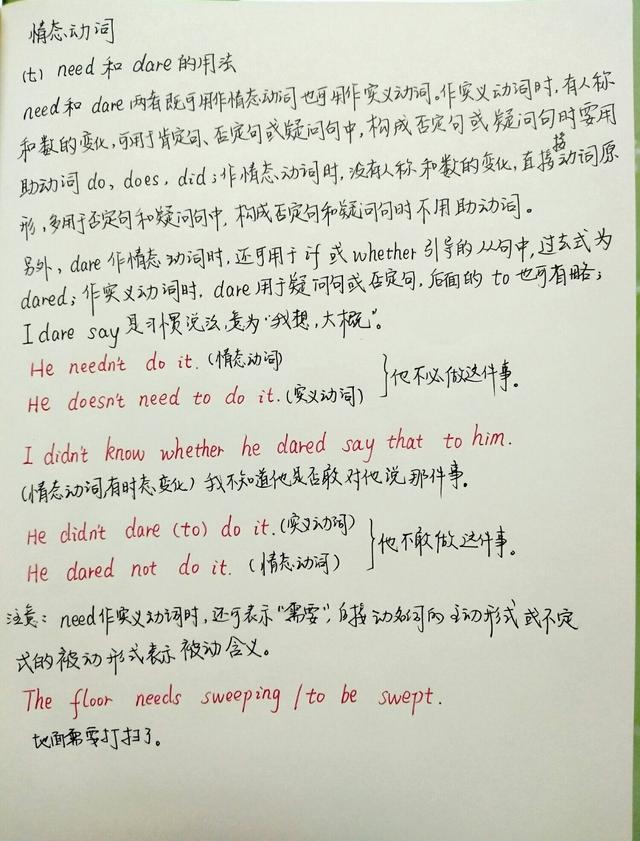 情态动词
(七) need 和 dare 的用法
need 和 dare 两者既可用作情态动词也可用作实义动词。作实义动词时,有人称
和数的变化,可用于肯定句、否定句或疑问句中,构成否定句或疑问句时要用
助动词 do, does, did;作情态动词时,没有人称和数的变化,直接接动词原
形,多用于否定句和疑问句中,构成否定句和疑问句时不用助动词。
另外,dare 作情态动词时,还可用于 if 或 whether 引导的从句中,过去式为
dared;作实义动词时,dare 用于疑问句或否定句,后面的 to 也可省略;
I dare say 是习惯说法,意为“我想,大概”。
He needn't do it. (情态动词)
He doesn't need to do it. (实义动词)
}他不必做这件事。
I didn't know whether he dared say that to him.
(情态动词,有时态变化) 我不知道他是否敢对他说那件事。
He didn't dare (to) do it. (实义动词)
He dared not do it. (情态动词)
}他不敢做这件事。
注意: need 作实义动词时,还可表示“需要”,直接接动名词的主动形式或不定
式的被动形式表示被动含义。
The floor needs sweeping / to be swept.
地面需要打扫了。